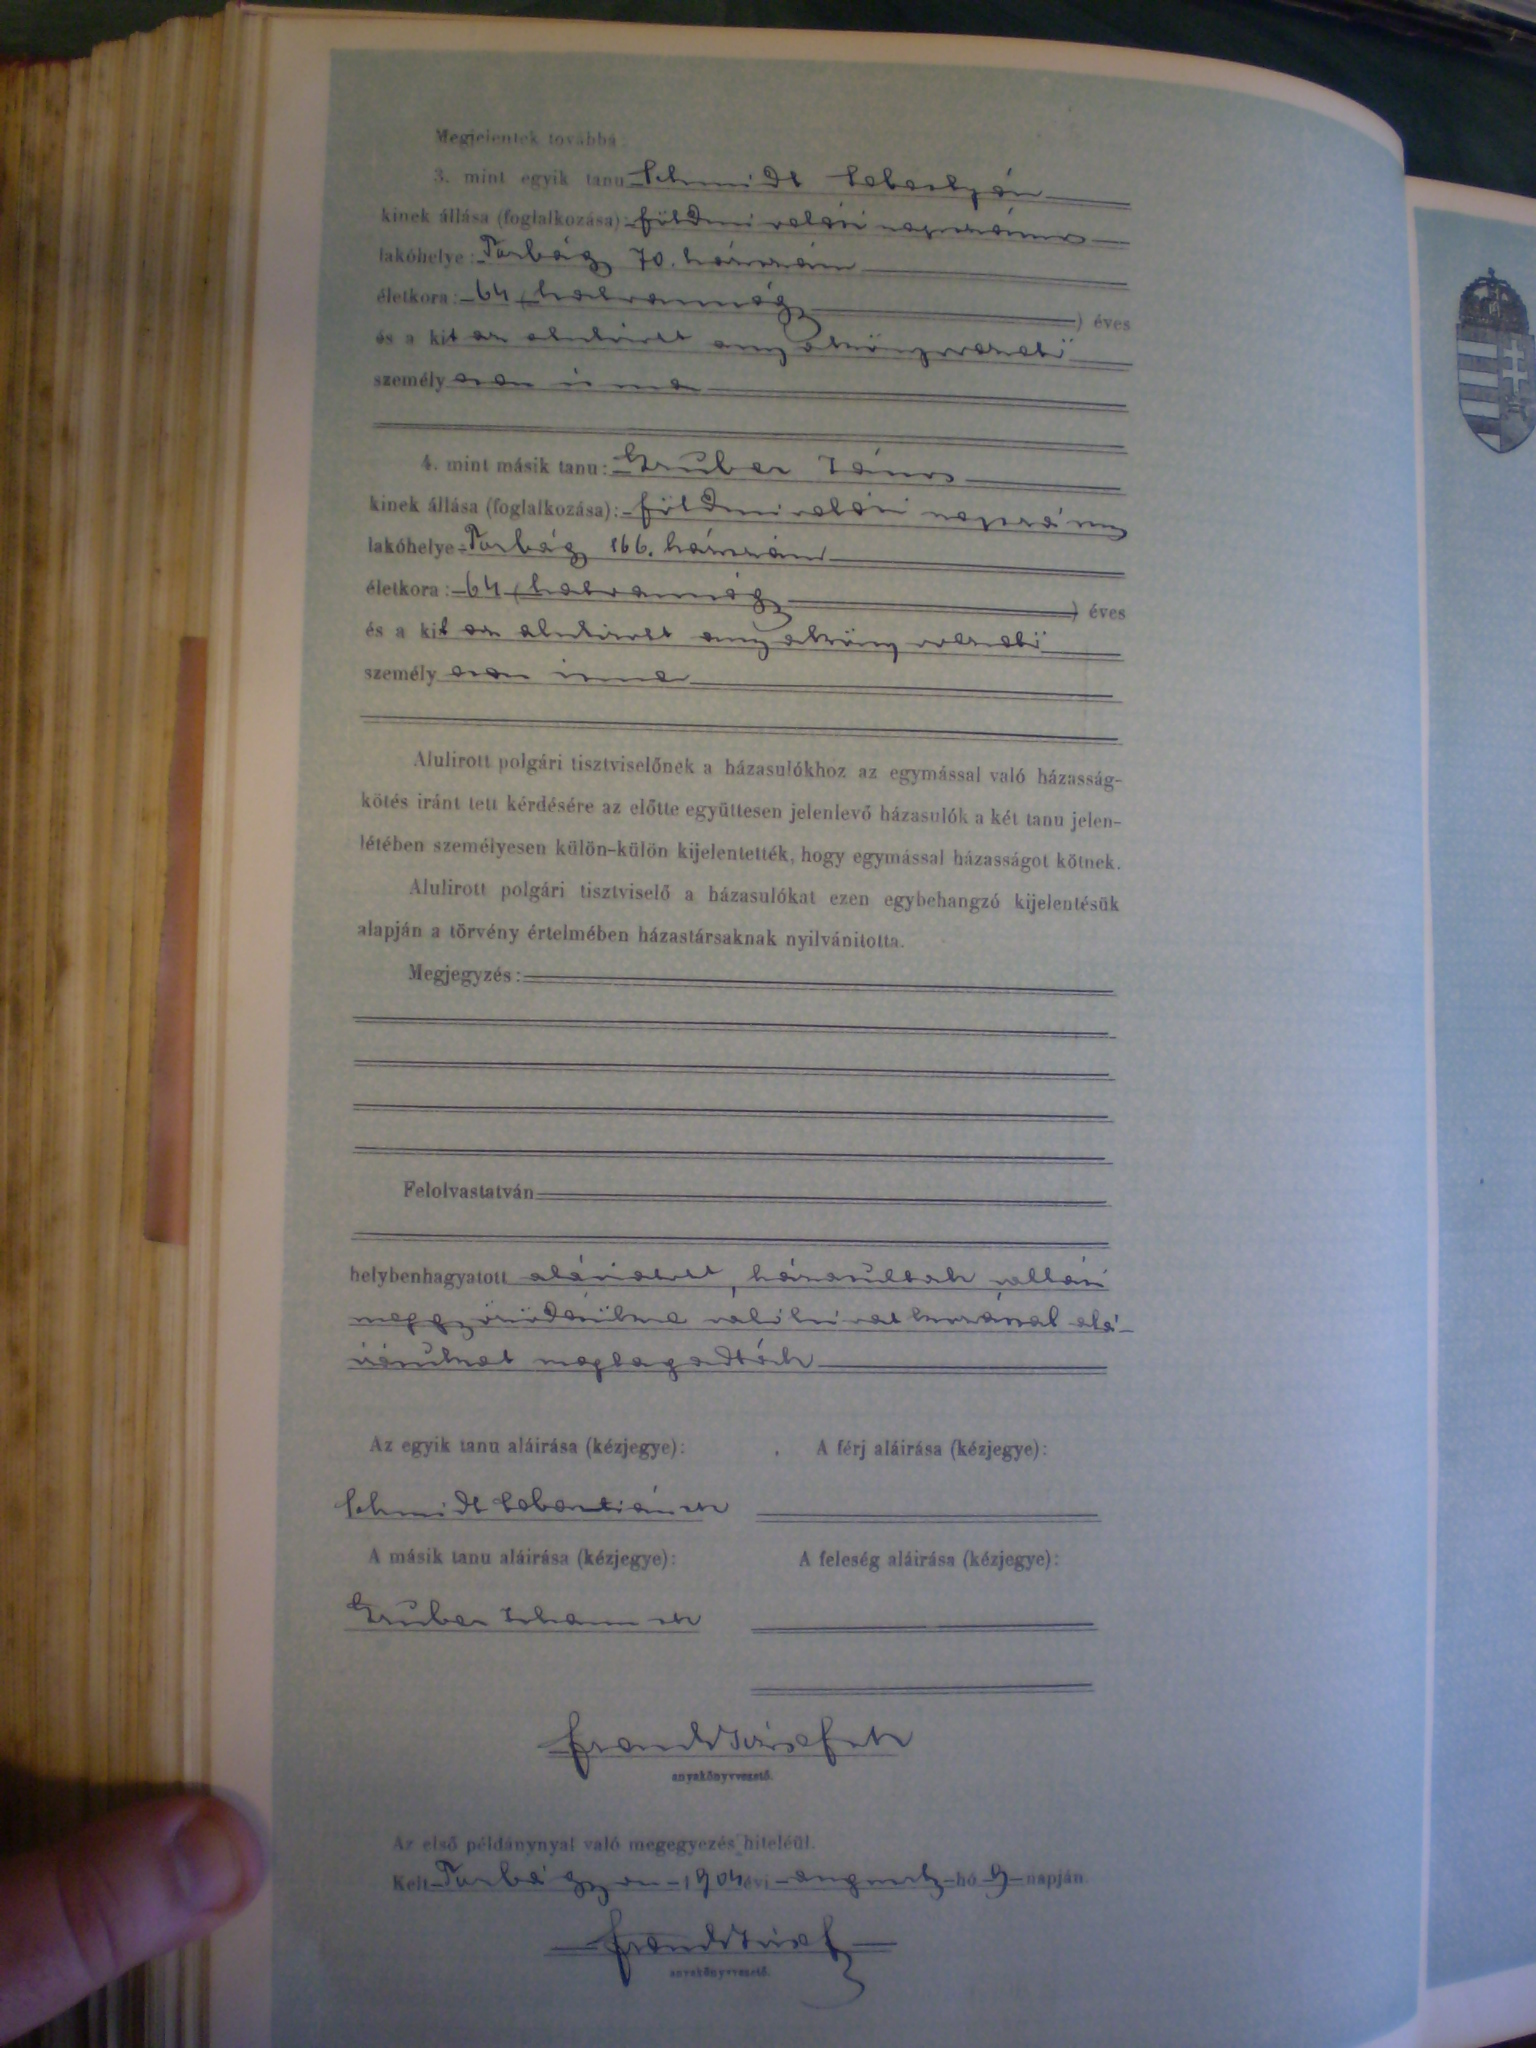 Megjelentek továbbá:
3. mint egyik tanu Schmidt Sebestyén
kinek állása (foglalkozása): földmivelési napszámos
lakóhelye: Torbág 70. házszám
életkora: 64 (hatvannégy) éves
és a kit az alulirott anyakönyvvezető
személyesen ismer
4. mint másik tanu: Gruber János
kinek állása (foglalkozása): földmivelési
lakóhelye: Torbág 166. házszám
életkora: 64 (hatvannégy) éves
és a kit az alulirott anyakönyvvezető
személyesen ismer
Alulirott polgári tisztviselőnek a házasulókhoz az egymással való házasság-
kötés iránt tett kérdésére az előtte együttesen jelenlevő házasulók a két tanu jelen-
létében személyesen külön-külön kijelentették, hogy egymással házasságot kötnek.
Alulirott polgári tisztviselő a házasulókat ezen egybehangzó kijelentésük
alapján a törvény értelmében házastársaknak nyilvánitotta.
Megjegyzés:
Felolvastatván
helybenhagyatott aláiratott, házasultak vallási
meggyőződésükre való hivatkozással alá-
irásukat megtagadták
Az egyik tanu aláirása (kézjegye): A férj aláirása (kézjegye):
Schmidt Sebastián sk
A másik tanu aláirása (kézjegye): A feleség aláirása (kézjegye):
Gruber Johann sk
József sk
anyakönyvvezető.
Az első példánynyal való megegyezés hiteléül.
Kelt Torbágyon 1904 évi augusztus hó 9 napján
József
anyakönyvvezető.